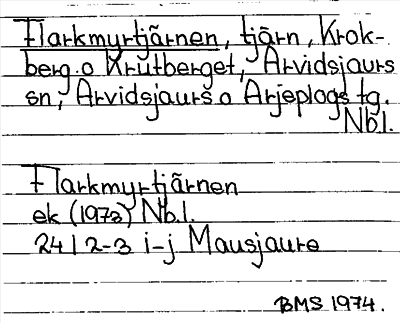 Flarkmyrtjärnen, tjärn, Krok-
berg o Krutberget, Arvidsjaurs
sn, Arvidsjaurs o Arjeplogs tg.
Nb.l.
Flarkmyrtjärnen
ek (1973) Nb.l.
24 I 2-3 i-j Mausjaure
BMS 1974.